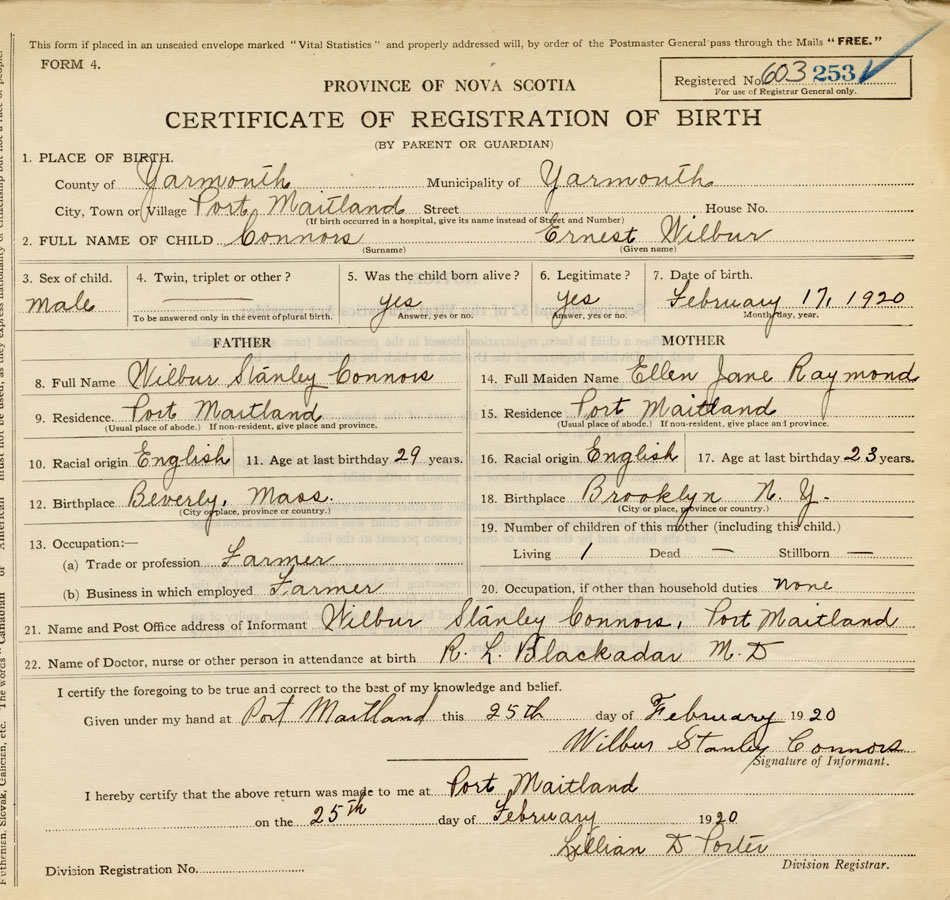 This form if placed in an unsealed envelope marked "Vital Statistics" and properly addressed will, by order of the Postmaster General pass through the Mails "FREE."
FORM 4.
Registered No. 603 253
For use of Registrar General only.
PROVINCE OF NOVA SCOTIA
CERTIFICATE OF REGISTRATION OF BIRTH
(BY PARENT OR GUARDIAN)
1. PLACE OF BIRTH.
County of Yarmouth Municipality of Yarmouth
City, Town or Village Port Maitland Street House No.
(If birth occurred in a hospital, give its name instead of Street and Number)
2. FULL NAME OF CHILD Connors Ernest Wilbur
(Surname) (Given name)
3. Sex of child. 4. Twin, triplet or other? 5. Was the child born alive? 6. Legitimate? 7. Date of birth.
Male yes yes February 17, 1920
To be answered only in the event of plural birth. Answer, yes or no. Answer, yes or no. Month, day, year.
FATHER MOTHER
8. Full Name Wilbur Stanley Connors 14. Full Maiden Name Ellen Jane Raymond
9. Residence. Port Maitland 15. Residence Port Maitland
(Usual place of abode.) If non-resident, give place and province. (Usual place of abode.) If non-resident, give place and province.
10. Racial origin English 11. Age at last birthday 29 years. 16. Racial origin English 17. Age at last birthday 23 years.
12. Birthplace Beverly, Mass. 18. Birthplace Brooklyn N. Y.
(City or place, province or country.) (City or place, province or country.)
19. Number of children of this mother (including this child.)
13. Occupation:—
Living 1 Dead — Stillborn —
(a) Trade or profession Farmer
(b) Business in which employed Farmer 20. Occupation, if other than household duties none
21. Name and Post Office address of Informant Wilbur Stanley Connors, Port Maitland
22. Name of Doctor, nurse or other person in attendance at birth R. L. Blackadar M. D
I certify the foregoing to be true and correct to the best of my knowledge and belief.
Given under my hand at Port Maitland this 25th day of February 1920
Wilbur Stanley Connors
Signature of Informant.
I hereby certify that the above return was made to me at Port Maitland
on the 25th day of February 1920
Lillian D Porter
Division Registration No. Division Registrar.